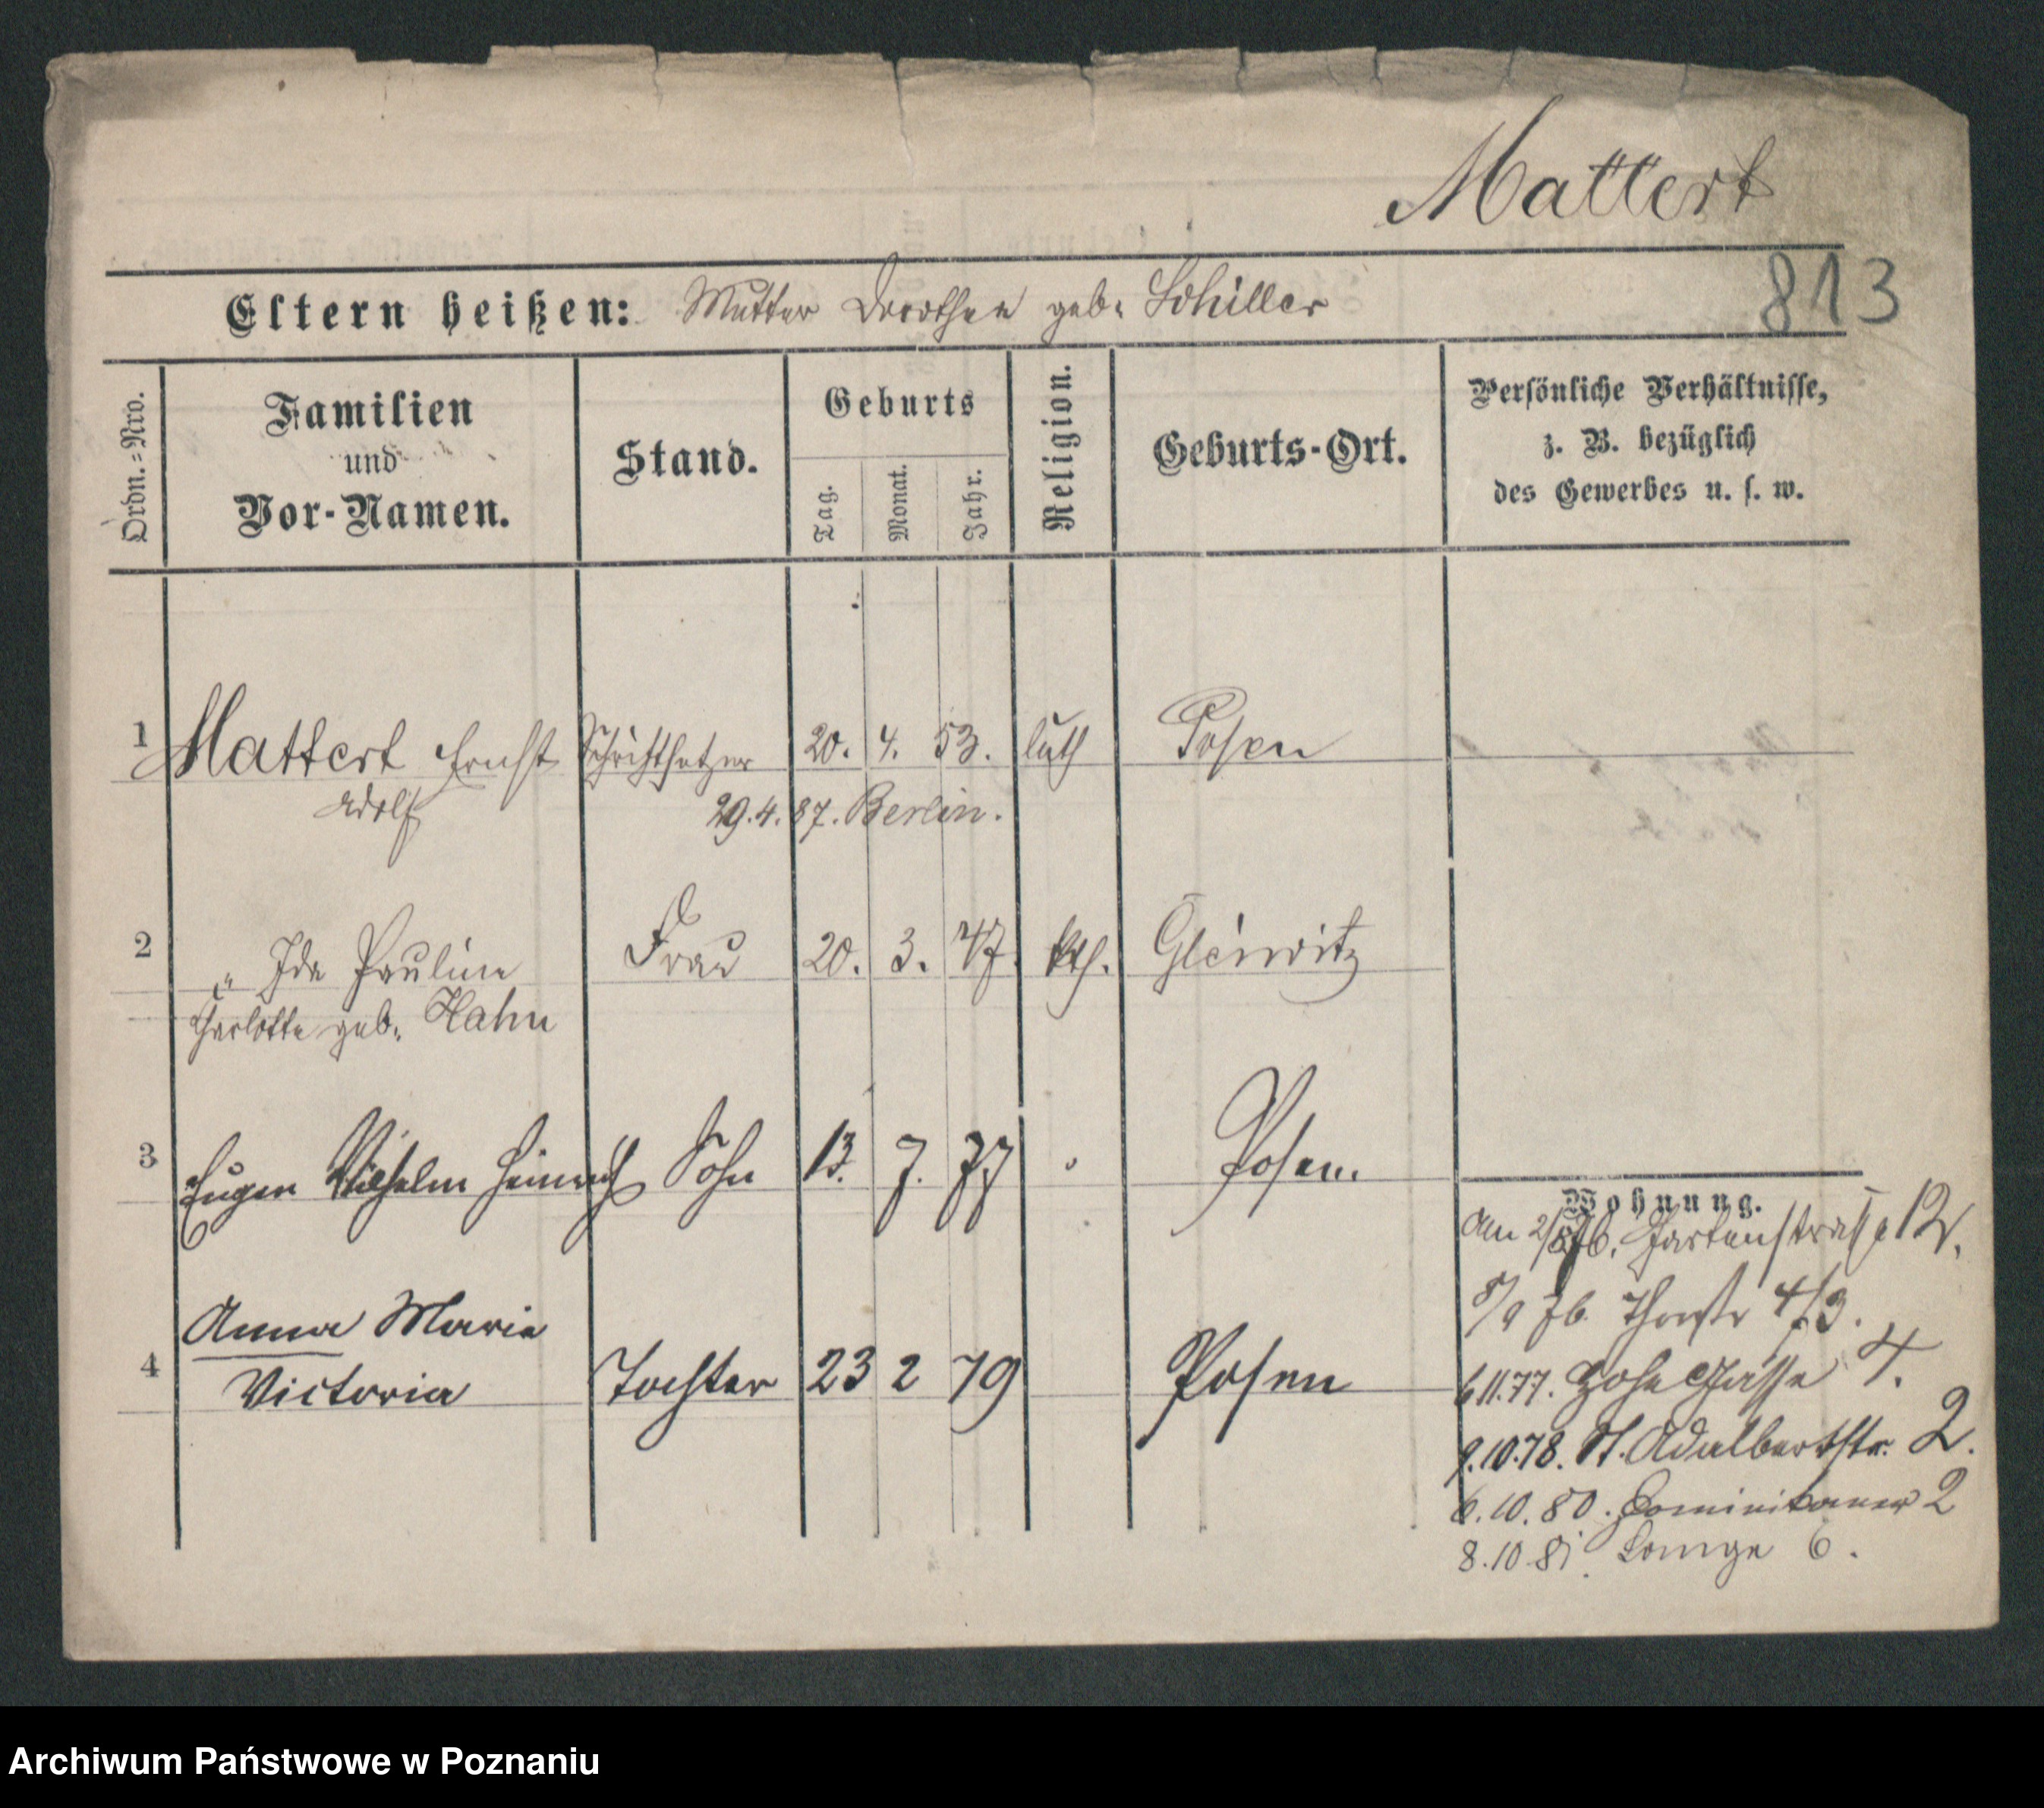 Mattert
813
Eltern heißen: Mutter Dorothea geb. Schiller
Ordn.-Nro.
Familien
und
Vor-Namen.
Stand.
Geburts
Tag.
Monat.
Jahr.
Religion.
Geburts-Ort.
Persönliche Verhältnisse,
z. B. bezüglich
des Gewerbes u. s. w.
1 Mattert Ernst Schriftsetzer 20. 4. 53. luth Posen
Adolf
29.4.87. Berlin.
2 " Ida Pauline Frau 20. 3. 47. kth. Gleiwitz
Charlotte geb. Hahn
3 Eugen Wilhelm Heinrich Sohn 13. 7. 77 Posen.
4 Anna Maria
Victoria Tochter 23 2 79 Posen
Wohnung.
am 2/8 76. Gartenstraße 12.
8/9 76. Thorstr 4/3.
6.11.77. Hohe Gasse 4.
9.10.78. St. Adalbertstr. 2.
6.10.80. Dominikaner 2
8.10.81. Lange 6.
Archiwum Państwowe w Poznaniu